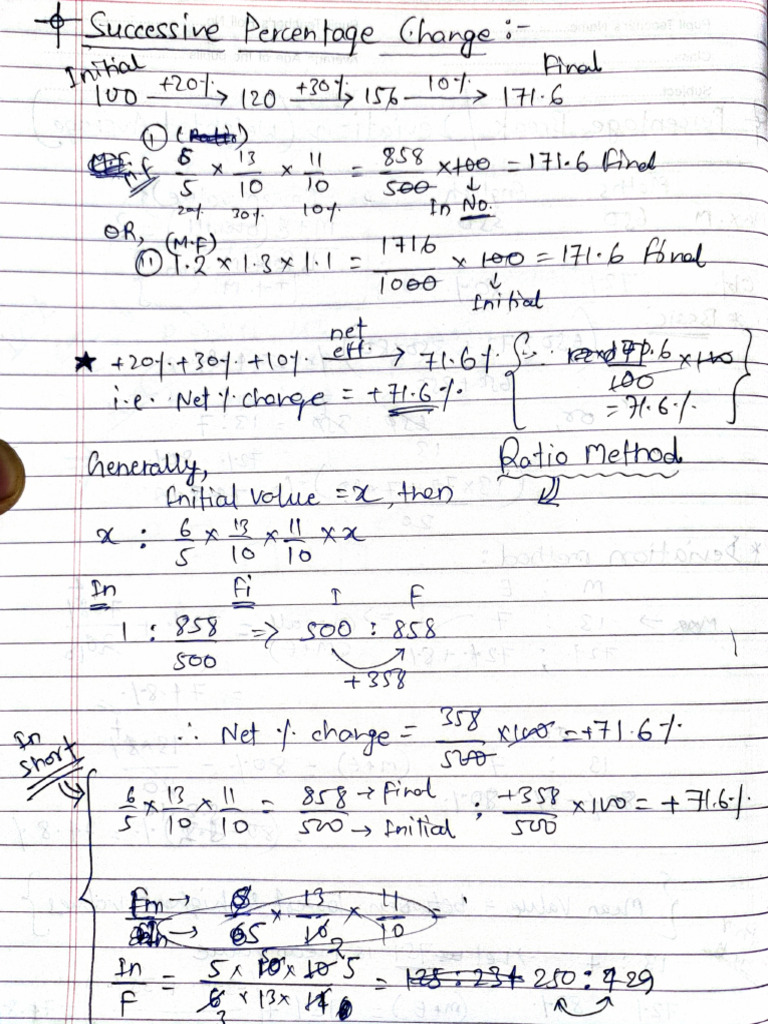 Successive Percentage Change :-
Initial Final
100 +20% → 120 +30% → 156 10% → 171.6
(i)
M.F 6/5 × 13/10 × 11/10 = 858/500 × 100 = 171.6 Final
20% 30% 10% In No.
OR, (M.F)
(ii) 1.2 × 1.3 × 1.1 = 1716/1000 × 100 = 171.6 Final
Initial
★ +20% +30% +10% net eff. → 71.6% { ∵ 71.6/100 × 100
i.e. Net % change = +71.6% = 71.6% }
Generally, Ratio Method
Initial value = x, then
x : 6/5 × 13/10 × 11/10 × x
In Fi I F
1 : 858/500 => 500 : 858
+358
∴ Net % change = 358/500 × 100 = +71.6%
In short
6/5 × 13/10 × 11/10 = 858 → Final/500 → Initial ; +358/500 × 100 = +71.6%
→ 6/5 × 13/10 × 11/10 =
In/F = 5 × 10 × 10/6 × 13 × 11 = 250 : 429